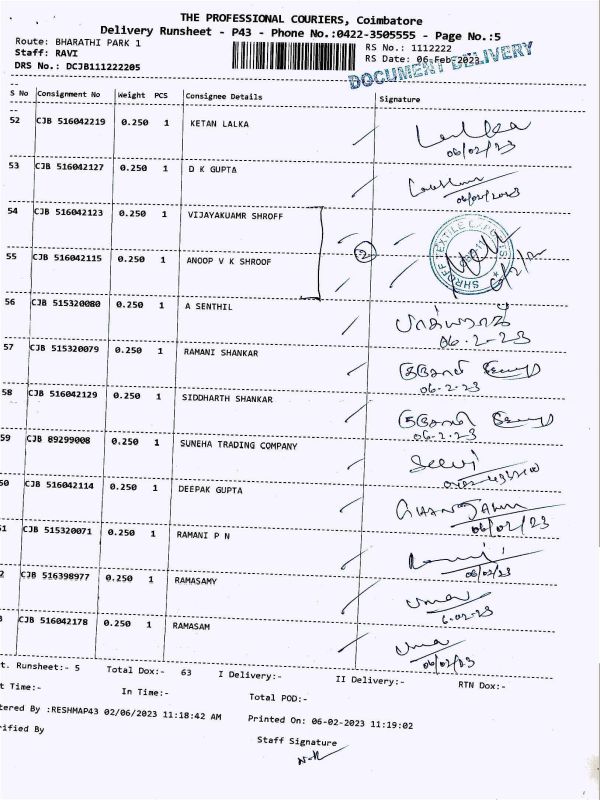 THE PROFESSIONAL COURIERS, Coimbatore
Delivery Runsheet - P43 - Phone No.:0422-3505555 - Page No.:5
Route: BHARATHI PARK 1 RS No.: 1112222
Staff: RAVI RS Date: 06-Feb-2023
DRS No.: DCJB111222205
DOCUMENT DELIVERY
S No Consignment No Weight PCS Consignee Details Signature
52 CJB 516042219 0.250 1 KETAN LALKA Lalka
06/02/23
53 CJB 516042127 0.250 1 D K GUPTA
06/02/2023
54 CJB 516042123 0.250 1 VIJAYAKUAMR SHROFF
2
55 CJB 516042115 0.250 1 ANOOP V K SHROOF
56 CJB 515320080 0.250 1 A SENTHIL
06-2-23
57 CJB 515320079 0.250 1 RAMANI SHANKAR
06-2-23
58 CJB 516042129 0.250 1 SIDDHARTH SHANKAR
06-2-23
59 CJB 89299008 0.250 1 SUNEHA TRADING COMPANY Selvi
50 CJB 516042114 0.250 1 DEEPAK GUPTA
06/02/23
51 CJB 515320071 0.250 1 RAMANI P N
06/02/23
2 CJB 516398977 0.250 1 RAMASAMY uma
6-02-23
3 CJB 516042178 0.250 1 RAMASAM uma
06/02/23
t. Runsheet:- 5 Total Dox:- 63 I Delivery:- II Delivery:- RTN Dox:-
t Time:- In Time:- Total POD:-
tered By :RESHMAP43 02/06/2023 11:18:42 AM Printed On: 06-02-2023 11:19:02
rified By
Staff Signature